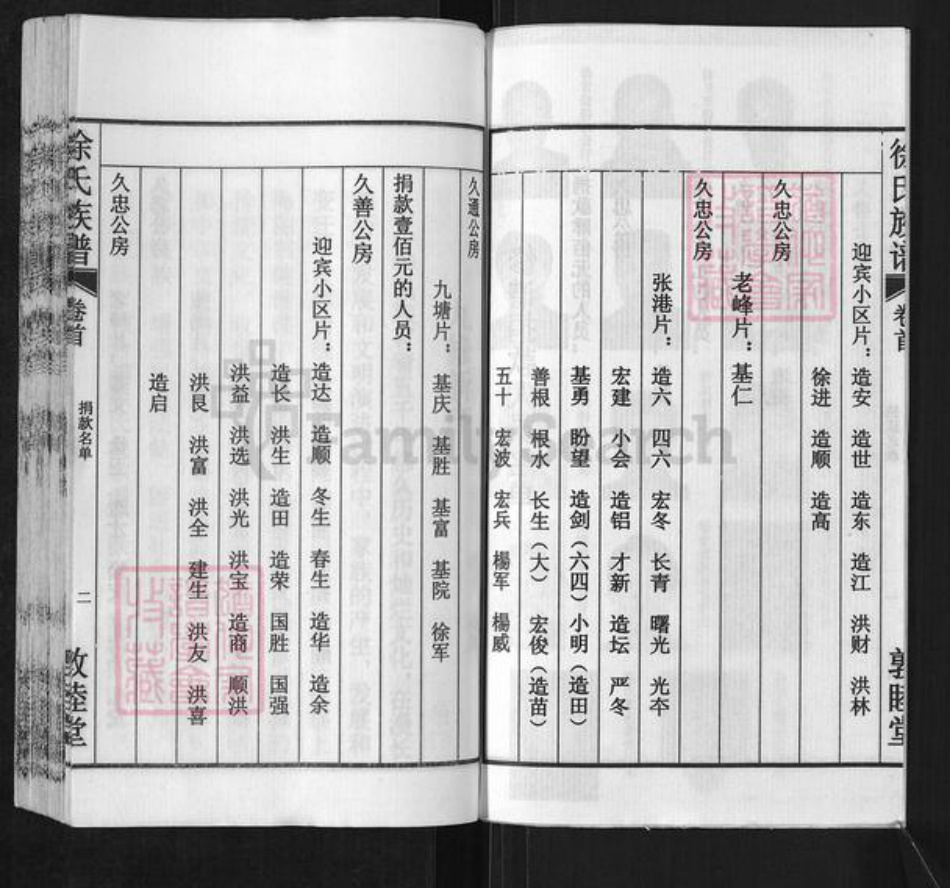 徐氏族谱
卷首
敦睦堂
迎宾小区片：造安 造世 造东 造江 洪财 洪林
徐进 造顺 造高
久忠公房
老峰片：基仁
久忠公房
张港片：造六 四六 宏冬 长青 曙光 光夲
宏建 小会 造铝 才新 造坛 严冬
基勇 盼望 造剑（六四）小明（造田）
善根 根水 长生（大） 宏俊（造苗）
五十 宏波 宏兵 楊军 楊威
久通公房
九塘片：基庆 基胜 基富 基院 徐军
捐款壹佰元的人员：
久善公房
迎宾小区片：造达 造顺 冬生 春生 造华 造余
造长 洪生 造田 造荣 国胜 国强
洪益 洪选 洪光 洪宝 造商 顺洪
洪艮 洪富 洪全 建生 洪友 洪喜
造启
久忠公房
徐氏族谱
卷首
捐款名单
二
敦睦堂
FamilySearch